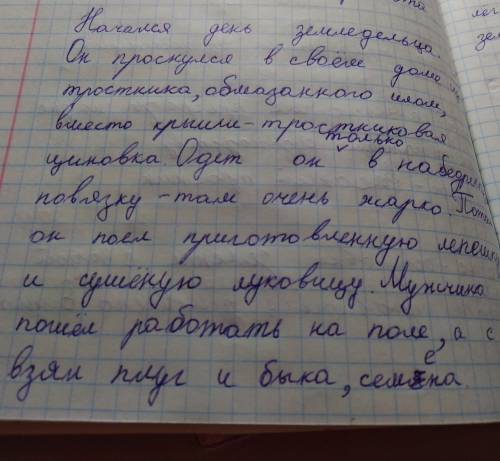 Начался день земледельца.
Он проснулся в своём доме из
тростника, обмазанного илом,
вместо крыши - тростниковая
только
циновка. Одет он в набедрен
повязку - там очень жарко. Пото
он поел приготовленную лепёшк
и сушёную луковицу. Мужчина
пошёл работать на поле, а с
взял плуг и быка, семена.